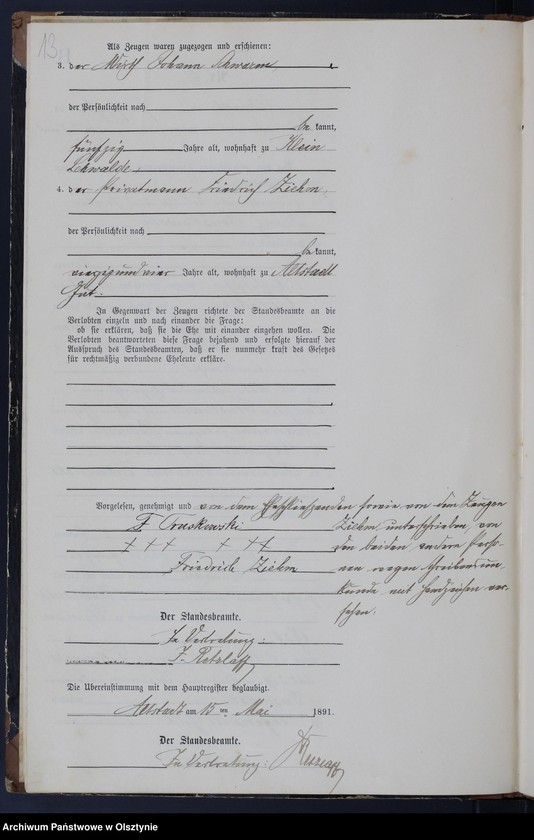 13
Als Zeugen waren zugezogen und erschienen:
3. der Wirth Johann Schwarm
der Persönlichkeit nach
be kannt,
fünfzig Jahre alt, wohnhaft zu Klein
Lehwalde.
4. der Privatmann Friedrich Ziehm,
der Persönlichkeit nach
be kannt,
vierzig und vier Jahre alt, wohnhaft zu Altstadt
Gut.
In Gegenwart der Zeugen richtete der Standesbeamte an die
Verlobten einzeln und nach einander die Frage:
ob sie erklären, daß sie die Ehe mit einander eingehen wollen. Die
Verlobten beantworteten diese Frage bejahend und erfolgte hierauf der
Ausspruch des Standesbeamten, daß er sie nunmehr kraft des Gesetzes
für rechtmäßig verbundene Eheleute erkläre.
Vorgelesen, genehmigt und von dem Eheschließenden sowie von dem Zeugen
Ziehm unterschrieben, von
den beiden andern Perso-
nen wegen Schreibensun-
kunde mit Handzeichen ver-
sehen.
F. Truskowski
+ + + + + +
Friedrich Ziehm
Der Standesbeamte.
In Vertretung:
F. Retzlaff
Die Übereinstimmung mit dem Hauptregister beglaubigt.
Altstadt am 15 ten Mai 1891.
Der Standesbeamte.
In Vertretung: Retzlaff
Archiwum Państwowe w Olsztynie